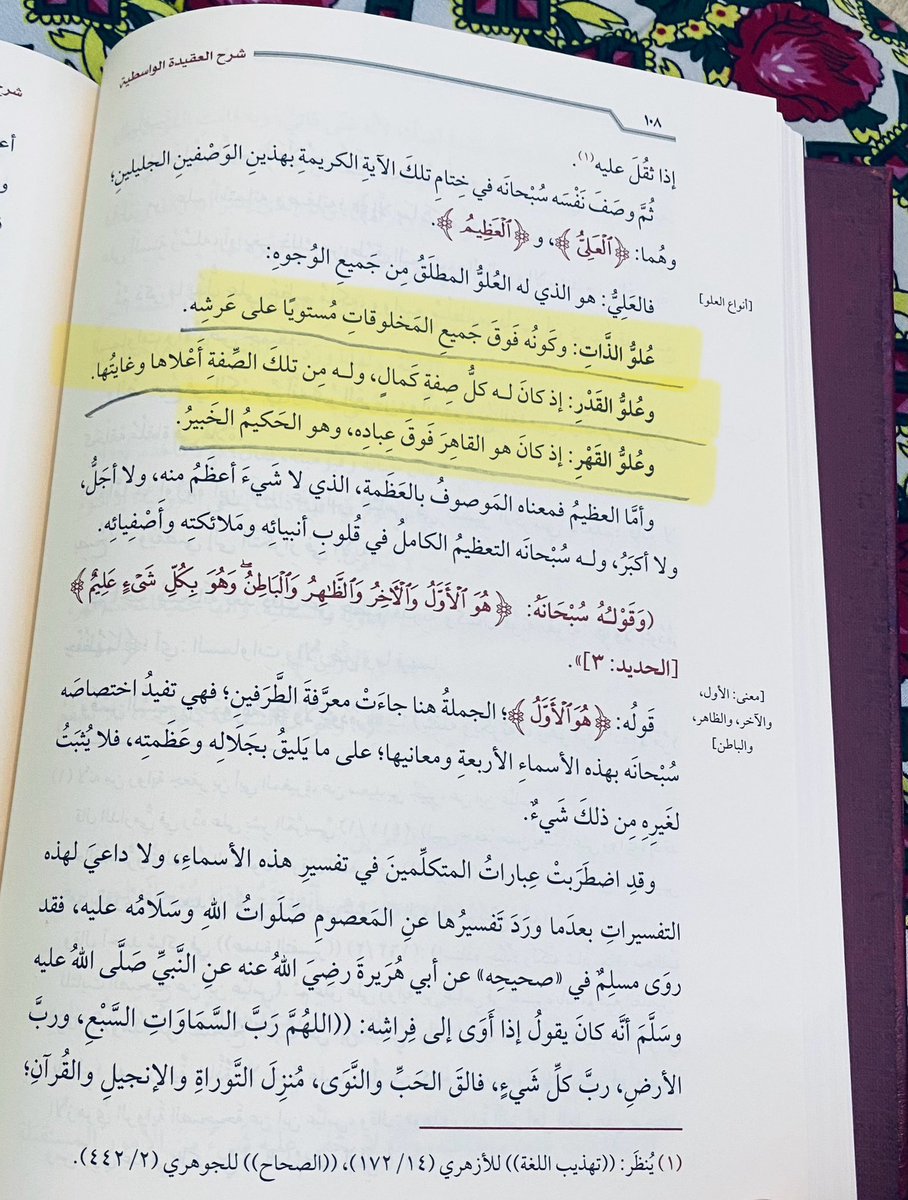 شرح العقيدة الواسطية
١٠٨
إذا ثقُلَ عليه(١).
ثُمَّ وصَفَ نَفْسَه سُبْحانَه في خِتامِ تلكَ الآيةِ الكريمةِ بهذينِ الوَصْفينِ الجليلينِ؛
وهُما: ﴿ٱلْعَلِيُّ﴾، و﴿ٱلْعَظِيمُ﴾.
[أنواع العلو]
فالعَلِيُّ: هو الذي له العُلوُّ المطلَقُ مِن جَميعِ الوُجوهِ:
عُلوُّ الذَّاتِ: وكَونُه فَوقَ جَميعِ المَخلوقاتِ مُستويًا على عَرشِه.
وعُلوُّ القَدْرِ: إذ كانَ لـه كلُّ صِفةِ كَمالٍ، ولـه مِن تلكَ الصِّفةِ أَعْلاها وغايتُها.
وعُلوُّ القَهْرِ: إذ كانَ هو القاهِرَ فَوقَ عِبادِه، وهو الحَكيمُ الخَبيرُ.
وأمَّا العظيمُ فمعناه المَوصوفُ بالعَظَمةِ، الذي لا شَيءَ أعظَمُ منه، ولا أجَلُّ،
ولا أكبَرُ، ولـه سُبْحانَه التعظيمُ الكاملُ في قُلوبِ أنبيائِه ومَلائكتِه وأَصْفِيائِه.
(وَقَوْلـهُ سُبْحَانَهُ: ﴿هُوَ ٱلْأَوَّلُ وَٱلْآخِرُ وَٱلظَّاهِرُ وَٱلْبَاطِنُ ۖ وَهُوَ بِكُلِّ شَيْءٍ عَلِيمٌ﴾
[الحديد: ٣]».
[معنى: الأول،
والآخر، والظاهر،
والباطن]
قَولُه: ﴿هُوَ ٱلْأَوَّلُ﴾؛ الجملةُ هنا جاءَتْ معرَّفةَ الطَّرَفينِ؛ فهي تفيدُ اختصاصَه
سُبْحانَه بهذه الأسماءِ الأربعةِ ومعانيها؛ على ما يَليقُ بجَلالِه وعَظَمتِه، فلا يُثبتُ
لغَيرِهِ مِن ذلكَ شَيءٌ.
وقدِ اضطَرَبتْ عِباراتُ المتكلِّمينَ في تفسيرِ هذه الأسماءِ، ولا داعيَ لهذه
التفسيراتِ بعدَما ورَدَ تَفسيرُها عن المَعصومِ صَلَواتُ اللهِ وسَلَامُه عليه، فقد
روَى مسلِمٌ في «صحيحِه» عن أبي هُرَيرةَ رضِيَ اللهُ عنه عنِ النَّبيِّ صَلَّى اللهُ عليه
وسَلَّمَ أنَّه كانَ يقولُ إذا أَوَى إلى فِراشِه: ((اللهُمَّ رَبَّ السَّمَاوَاتِ السَّبْعِ، وربَّ
الأرضِ، ربَّ كلِّ شَيءٍ، فالقَ الحَبِّ والنَّوَى، مُنزِلَ التَّوراةِ والإنجيلِ والقُرآنِ؛
(١) يُنظَر: ((تهذيب اللغة)) للأزهري (١٤/ ١٧٢)، ((الصحاح)) للجوهري (٢/ ٤٤٢).